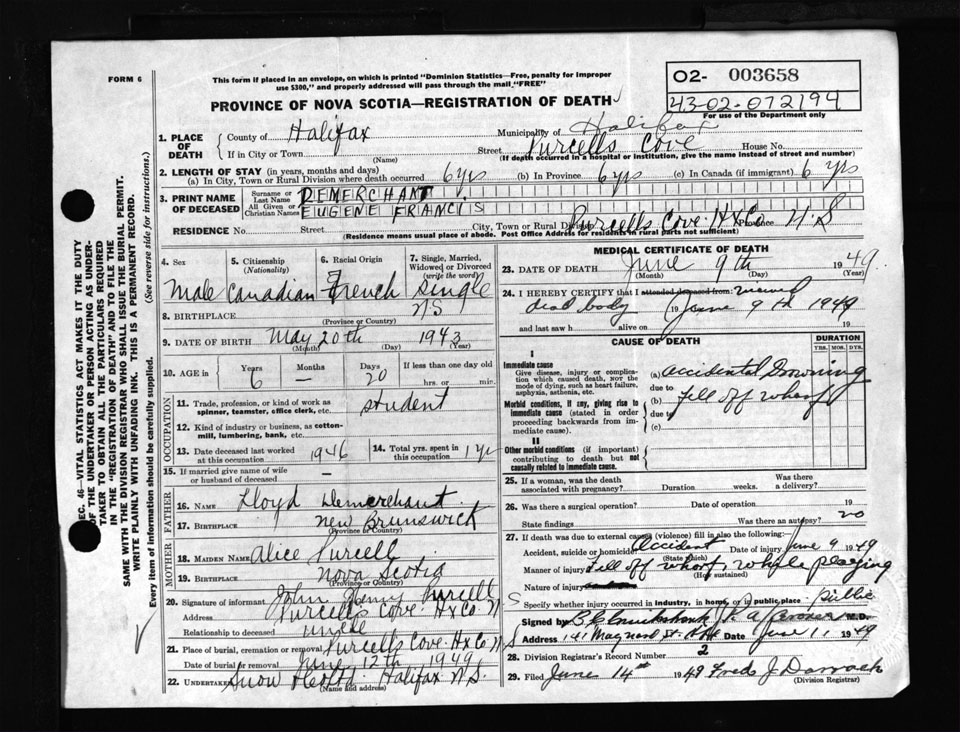 FORM 6
This form if placed in an envelope, on which is printed "Dominion Statistics—Free, penalty for improper
use $300," and properly addressed will pass through the mail "FREE"
02- 003658
43-02-072194
For use of the Department only
PROVINCE OF NOVA SCOTIA—REGISTRATION OF DEATH
1. PLACE OF DEATH County of Halifax Municipality of Halifax
If in City or Town (Name) Street Purcells Cove House No.
(If death occurred in a hospital or institution, give the name instead of street and number)
2. LENGTH OF STAY (in years, months and days)
(a) In City, Town or Rural Division where death occurred 6 yrs (b) In Province 6 yrs (c) In Canada (if immigrant) 6 yrs
3. PRINT NAME OF DECEASED Surname or Last Name DEMERCHANT
All Given or Christian Names EUGENE FRANCIS
RESIDENCE No. Street City, Town or Rural Division Purcells Cove Hx Co Province N S
(Residence means usual place of abode. Post Office Address for residents in rural parts not sufficient)
4. Sex Male
5. Citizenship (Nationality) Canadian
6. Racial Origin French
7. Single, Married, Widowed or Divorced (write the word) Single
8. BIRTHPLACE NS
(Province or Country)
9. DATE OF BIRTH May 20th 1943
(Month) (Day) (Year)
10. AGE in Years 6 Months — Days 20 If less than one day old hrs. or min.
OCCUPATION
11. Trade, profession or kind of work as spinner, teamster, office clerk, etc. Student
12. Kind of industry or business, as cotton-mill, lumbering, bank, etc.
13. Date deceased last worked at this occupation 1946 14. Total yrs. spent in this occupation 1 yr
15. If married give name of wife or husband of deceased —
FATHER
16. Name Lloyd Demerchant
17. BIRTHPLACE New Brunswick
(Province or Country)
MOTHER
18. MAIDEN NAME Alice Purcell
19. BIRTHPLACE Nova Scotia
(Province or Country)
20. Signature of informant John Henry Purcell
Address Purcells Cove Hx Co N S
Relationship to deceased uncle
21. Place of burial, cremation or removal Purcells Cove Hx Co N S
Date of burial or removal June 12th 1949
22. Undertaker Snow & Co Ltd. Halifax N.S.
(Name and address)
MEDICAL CERTIFICATE OF DEATH
23. DATE OF DEATH June 9th 1949
(Month) (Day) (Year)
24. I HEREBY CERTIFY that I attended deceased from: viewed
dead body 19 June 9th 1949
and last saw h alive on 19
CAUSE OF DEATH DURATION
YRS. MOS. DYS.
I
Immediate cause
Give disease, injury or complication which caused death, NOT the mode of dying, such as heart failure, asphyxia, asthenia, etc.
(a) accidental Drowning
due to
Morbid conditions, if any, giving rise to immediate cause (stated in order proceeding backwards from immediate cause).
(b) Fell off wharf
due to
(c)
II
Other morbid conditions (if important) contributing to death but not causally related to immediate cause.
25. If a woman, was the death associated with pregnancy? Duration weeks. Was there a delivery?
26. Was there a surgical operation? Date of operation 19
State findings Was there an autopsy? no
27. If death was due to external causes (violence) fill in also the following:
Accident, suicide or homicide? Accident Date of injury June 9 1949
(State which)
Manner of injury Fell off wharf, while playing
(How sustained)
Nature of injury
Specify whether injury occurred in industry, in home, or in public place. Public
Signed by M.D.
Address 141 Maynard St. Date June 11 1949
28. Division Registrar's Record Number 2
29. Filed June 14th 1949 Fred J Darrach
(Division Registrar)
SEC. 46—VITAL STATISTICS ACT MAKES IT THE DUTY
OF THE UNDERTAKER OR PERSON ACTING AS UNDER-
TAKER TO OBTAIN ALL THE PARTICULARS REQUIRED
IN THE "REGISTRATION OF DEATH" AND TO FILE THE
SAME WITH THE DIVISION REGISTRAR WHO SHALL ISSUE THE BURIAL PERMIT.
WRITE PLAINLY WITH UNFADING INK. THIS IS A PERMANENT RECORD.
Every item of information should be carefully supplied. (See reverse side for instructions.)